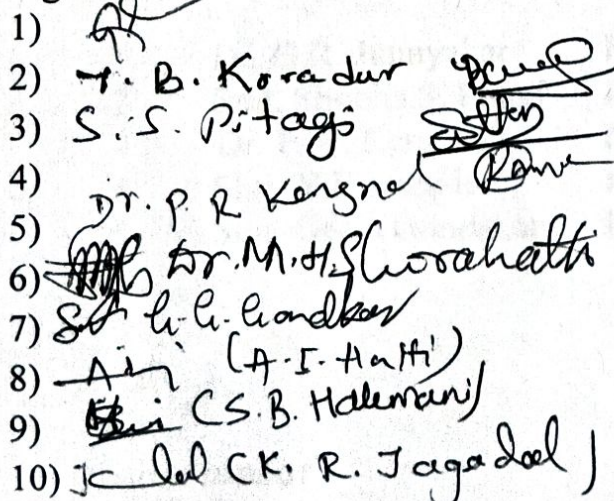 1)
2) Y. B. Koradur
3) S. S. Pitagi
4) Dr. P. R. Kengnal
5)
6) Dr. M. H. Shorahatti
7) G. G. Gondkar
8) (A. I. Hatti)
9) (S. B. Halemani)
10) (K. R. Jagadal)